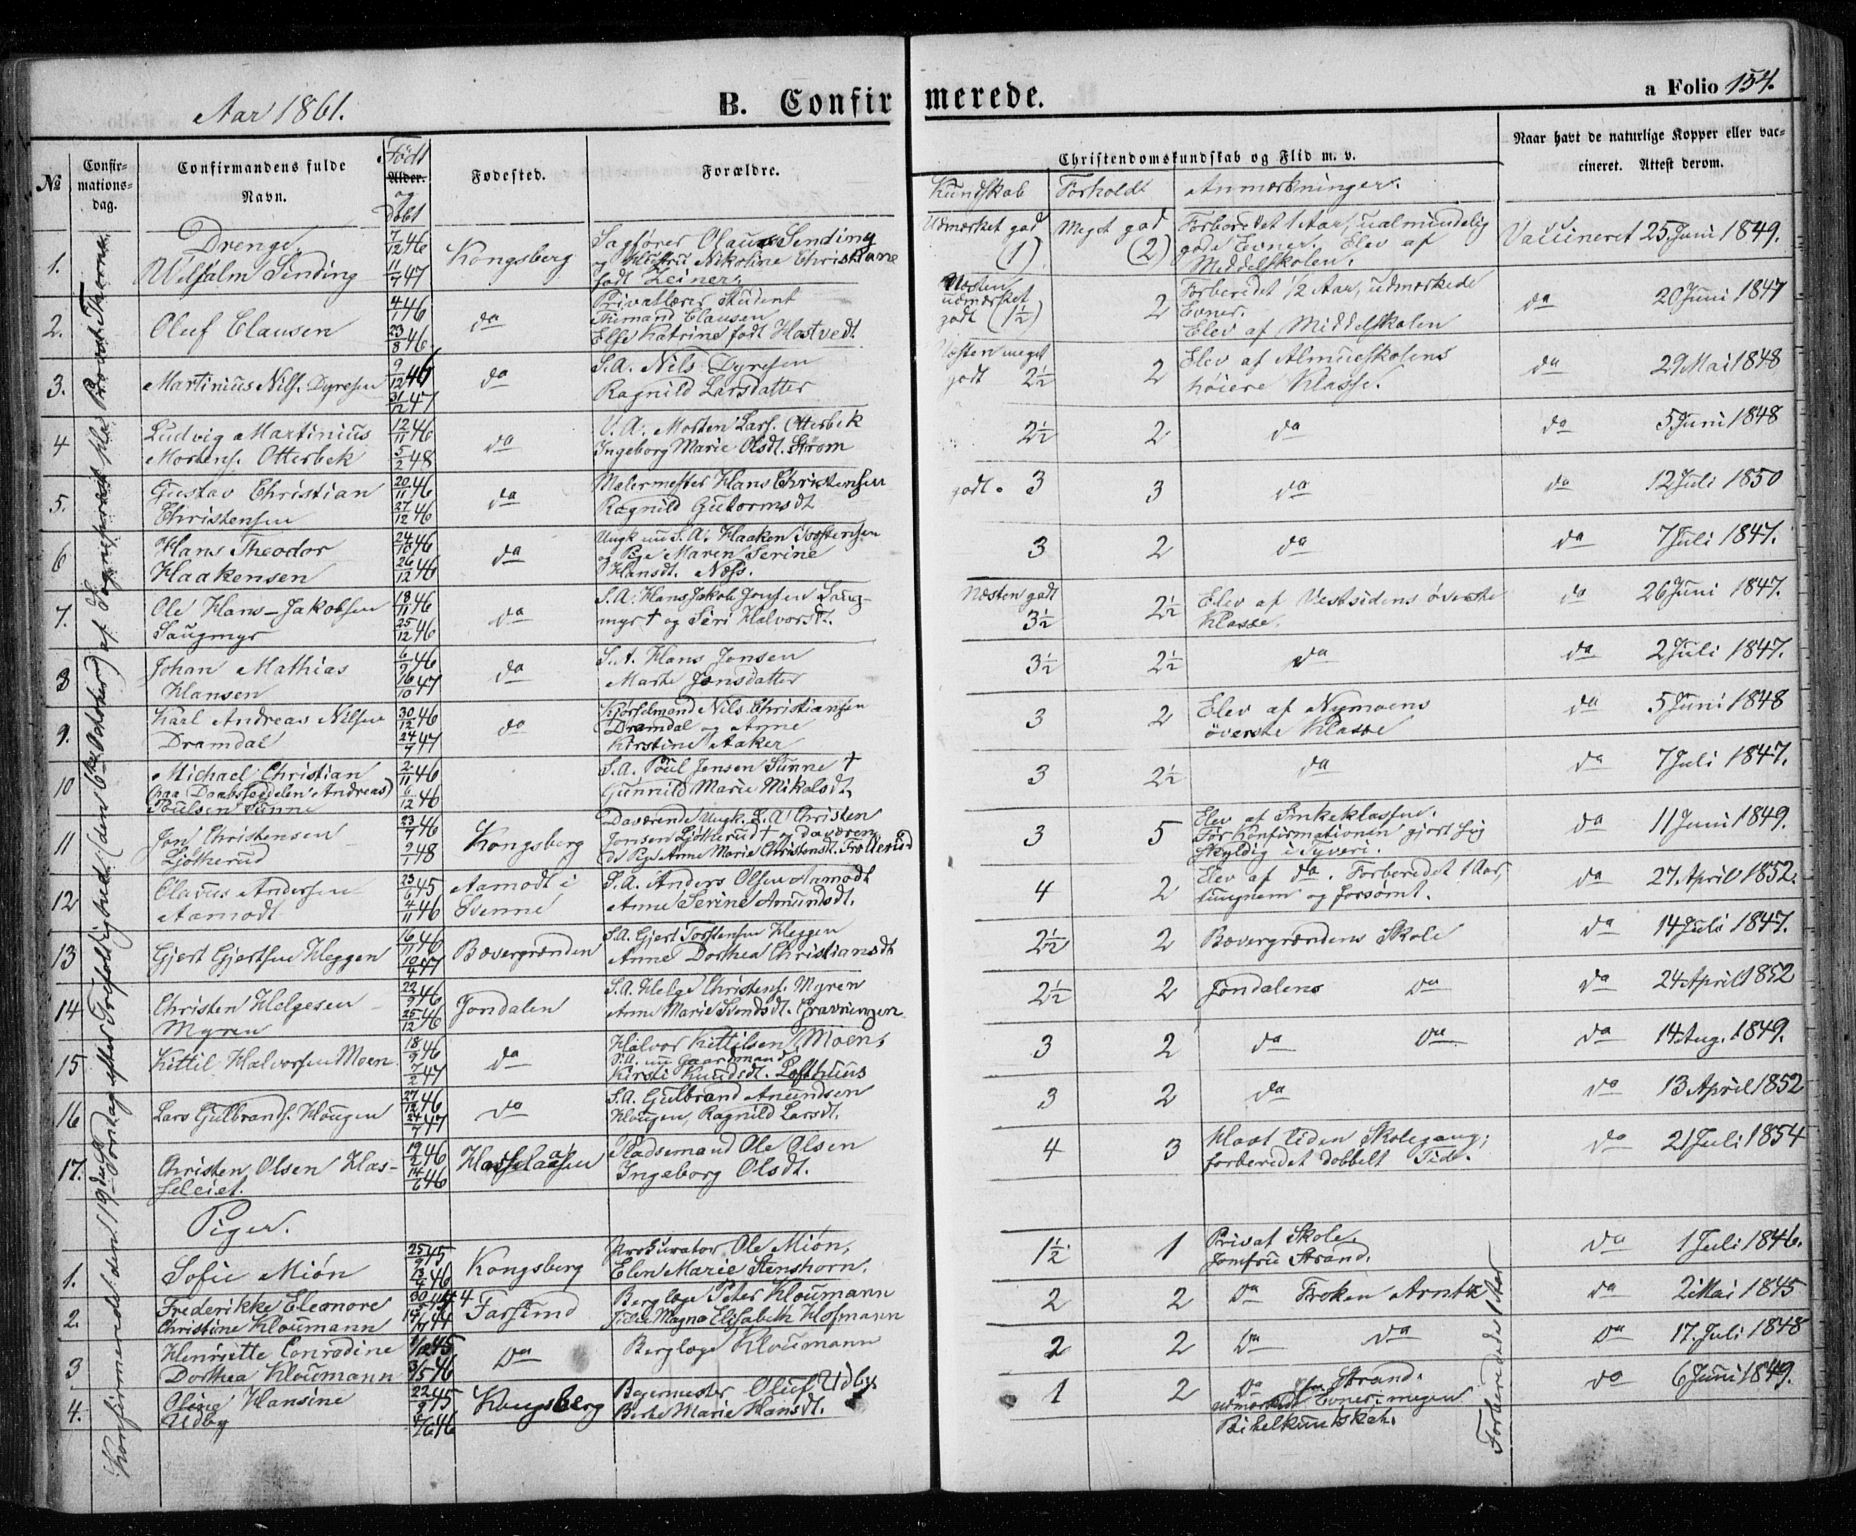 Aar 1861.
B. Confirmerede.
a Folio 154.
No
Confirmationsdag.
Confirmandens fulde Navn.
Født Alder. og Døbt
Fødested.
Forældre.
Christendomskundskab og Flid m. v.
Kundskab Forhold Anmærkninger.
Naar havt de naturlige Kopper eller vaccineret. Attest derom.
Drenge.
1. Vilhelm Sinding 7/12 46 Kongsberg
Sagfører Olaus Sinding
og Hustru Nikoline Christiane
født Zeiner.
Udmærket god (1) Meget god (2)
Forberedet 1 Aar, ualmindelig
gode Evner. Elev af
Middelskolen.
Vaccineret 25 Juni 1849.
2. Oluf Clausen 23/8 46 da
Privatlærer Student
Clausen
Else Katrine født Hastvedt.
Næsten udmærket godt (1½) 2
Forberedet 1/2 Aar, udmærkede
Evner.
Elev af Middelskolen
da 20 Juni 1847
3. Martinius Nils. Dyresen 9/12 46 31/12 47 da
S.A. Nils Dyresen
Ragnild Larsdatter
Næsten meget godt 2½ 2
Elev af Almueskolens
høiere Klasse.
da 29 Mai 1848
4 Ludvig Martinius
Mortens. Otterbek 12/11 46 5/2 48 da
Morten Lars. Otterbek
Ingeborg Marie Olsdt. Strøm
2½ 2 da da 5 Juni 1848
5. Gustav Christian
Christensen 20/11 46 27/12 46 da
Malermester Hans Christensen
Ragnild Gutormsdt
godt. 3 3 da da 12 Juli 1850
6 Hans Theodor
Haakensen 24/10 46 26/12 46 da
Ungk nu S.A. Haaken Torstensen
og Pge Maren Serine
Hansdt. Næss.
3 2 da da 7 Juli 1847.
7. Ole Hans-Jakobsen
Saugmyr 18/11 46 25/12 46 da
S.A. Hans Jakob Jonsen Saug-
myr † og Siri Halvorsdt.
Næsten godt 3½ 2½
Elev af Vestsidens øverste
Klasse.
da 26 Juni 1847.
8 Johan Mathias
Hansen 6/9 46 16/10 47 da
S.A. Hans Jensen
Marte Jonsdatter
3½ 2½ da da 2 Juli 1847.
9. Karl Andreas Nilsen
Dramdal 30/12 46 24/7 47 da
Kjørselmand Nils Christiansen
Dramdal og Anne
Kirstine Aaker
3 2
Elev af Nymoens
øverste Klasse
da 5 Juni 1848
10 Michael Christian
(paa Daabsseddelen Andreas)
Poulsen Sunne 2/11 46 6/12 46
S.A. Poul Jensen Sunne †
Gunnild Marie Nikolsdt.
3 2½ da da 7 Juli 1847.
11 Jon Christensen
Ljøtherud 23/7 46 9/1 48 Kongsberg
Daværende Ungk. S.A. Christen
Jonsen Ljøtherud † og daværen-
de Pge Anne Marie Christensdt. Trollerud
3 5
Elev af Sinkeklassen.
Før Konfirmationen gjort sig
skyldig i Tyveri.
da 11 Juni 1849.
12 Olavus Andersen
Aamodt 23/6 45 4/11 46 Aamodt i Svenne
S.A. Anders Olsen Aamodt
Anne Serine Amundsdt.
4 2
Elev af da. Forberedet 1 Aar,
tungnem og forsømt.
da 27 April 1852.
13 Gjert Gjertsen Heggen 16/11 46 10/4 47 Bævergrænden
S.A. Gjert Torstensen Heggen
Anne Dorthea Christiansdt
2½ 2 Bævergrændens Skole da 14 Juli 1847.
14 Christen Helgesen
Myren 22/9 46 25/12 46 Jondalen
S.A. Helge Christens. Myren
Anne Marie Svendsdt. Gravningen
2½ 2 Jondalens da da 24 April 1852
15 Kittil Halvorsen Moen 18/9 46 7/2 47 da
Halvor Kittilsen Moen,
S.A. nu Gaardmand
Kirsti Knudsdt. Lofthuus
3 2 da da da 14 Aug. 1849.
16 Lars Gulbrands. Hougen 27/12 46 24/7 47 da
S.A. Gulbrand Amundsen
Hougen, Ragnild Larsdt.
3 2 da da 13 April 1852
17. Christen Olsen Has-
seleiet. 19/2 46 14/6 46 Hasselaasen
Pladsemand Ole Olsen
Ingeborg Olsdt.
4 3
Havt liden Skolegang;
forberedet dobbelt Tid.
da 21 Juli 1854
Piger.
1. Sofie Miøn 25/9 45 13/4 46 Kongsberg
Prokurator Ole Miøn,
Elen Marie Stenshorn.
1½ 1
Privat Skole.
Jomfru Strand.
da 1 Juli 1846.
2. Frederikke Eleonore
Christine Kloumann Farsund
Berglæge Peter Kloumann
Magna Elisabeth Hofmann
2 2 da Frøken Arntz da 2 Mai 1845
3 Henriette Conradine
Dorthea Kloumann 31/5 46 da
Berglæge Kloumann
2 2 da da da 17. Juli 1848
4. Oline Hansine
Udby 22/9 45 Kongsberg
Bagermester Oluf Udby
Berte Marie Hansdt.
1 2 da Strand.
udmærkede Evner, megen
Bibelkundskab.
da 6 Juni 1849.
Forberedede 1 Aar
Konfirmerede den 19de Søndag efter Trefoldighed (den 6te October) af Sognepræst